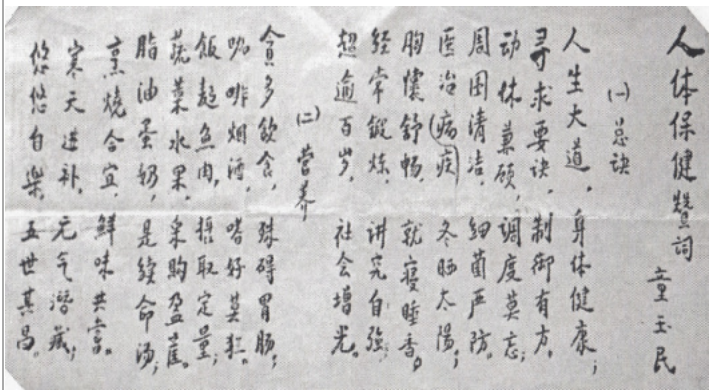 人体保健赞词
童玉民
(一) 总诀
人生大道，身体健康；
寻求要诀，制御有方。
动休兼顾，调度莫忘；
周围清洁，细菌严防。
医治(病疾)，冬晒太阳；
胸懷舒畅，就寝睡香。
经常锻炼，讲究自强；
超逾百岁，社会增光。
(二) 营养
貪多飲食，殊碍胃肠；
咖啡烟酒，嗜好莫狂。
飯麵魚肉，摄取定量；
蔬菜水果，采购盈筐。
脂油蛋奶，是续命汤；
烹烧合宜，鲜味共尝。
寒天进补，元气潜藏；
悠悠自樂，五世其昌。